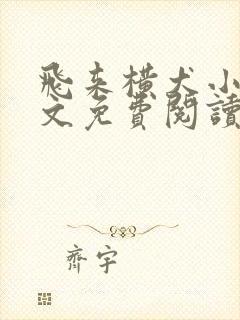 飛来橫犬小
文免費閱讀
齊宇